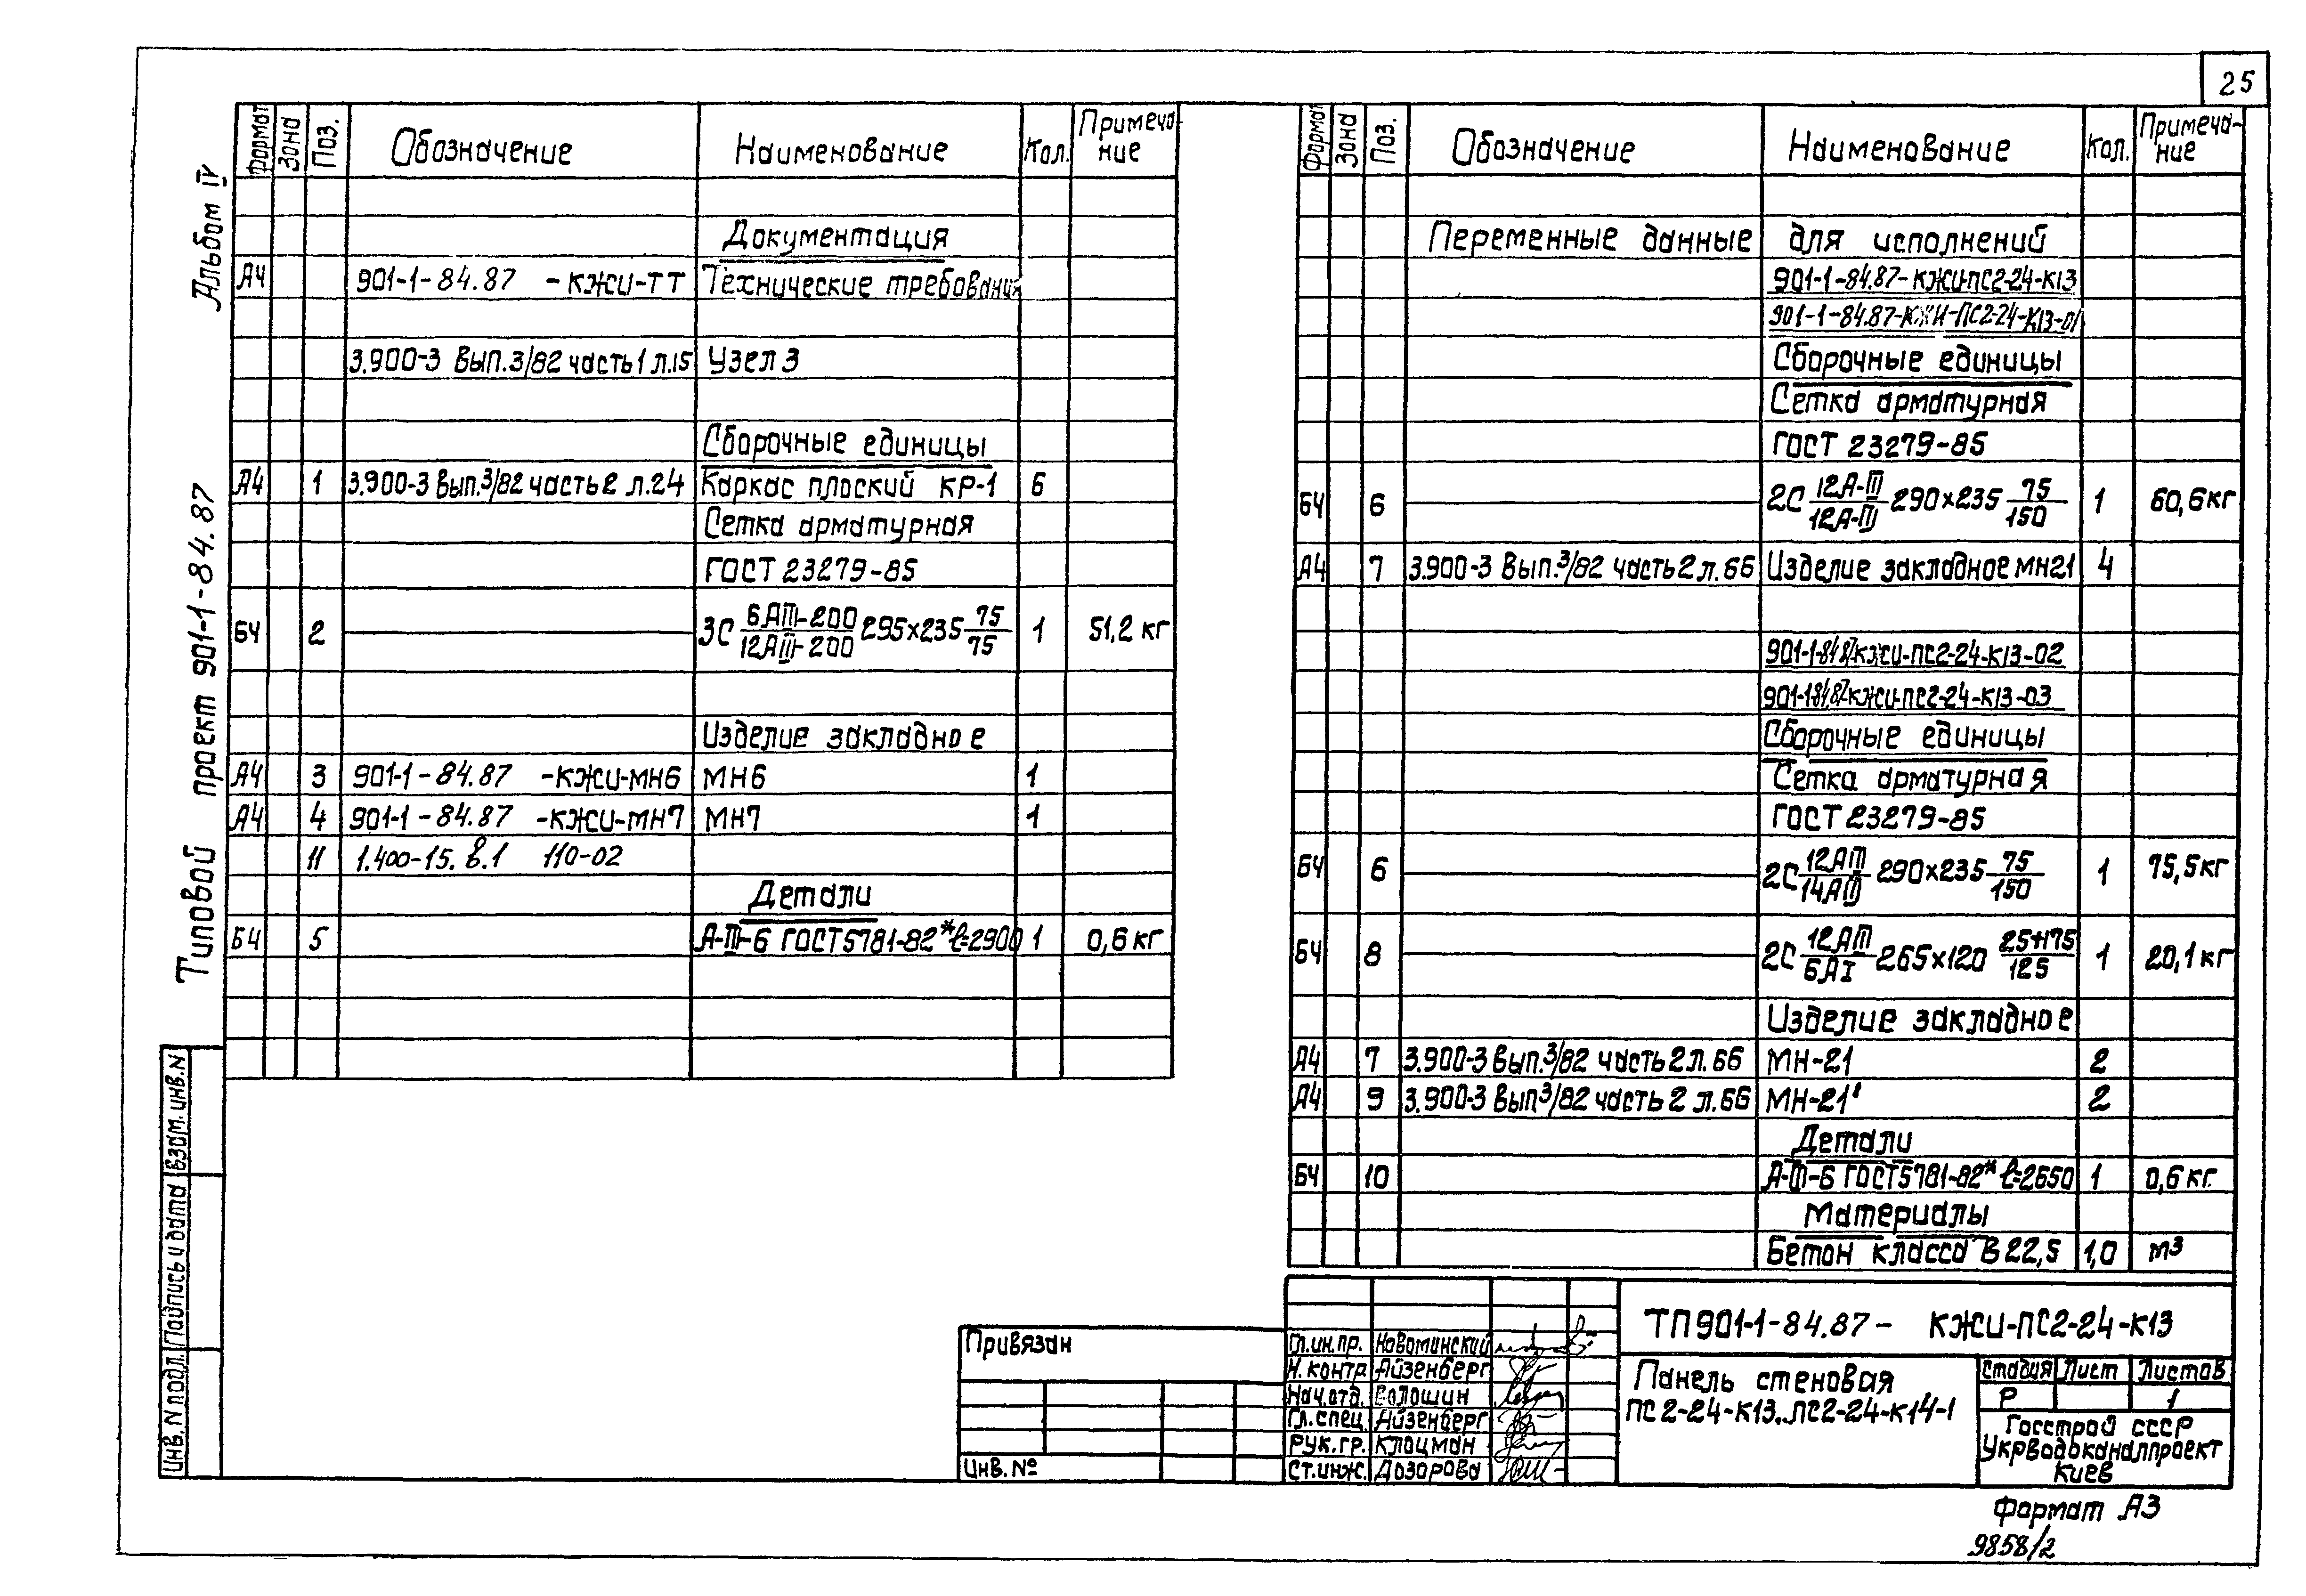 25
Альбом IV
Типовой проект 901-1-84.87
Формат Зона Поз. Обозначение Наименование Кол. Примеча-ние
Документация
А4 901-1-84.87 -КЖИ-ТТ Технические требования
3.900-3 Вып.3/82 часть 1 л.15 Узел 3
Сборочные единицы
А4 1 3.900-3 Вып.3/82 часть 2 л.24 Каркас плоский КР-1 6
Сетка арматурная
ГОСТ 23279-85
БЧ 2 3С 6АIII-200/12АIII-200 295х235 75/75 1 51,2 кг
Изделие закладное
А4 3 901-1-84.87 -КЖИ-МН6 МН6 1
А4 4 901-1-84.87 -КЖИ-МН7 МН7 1
11 1.400-15. В.1 110-02
Детали
БЧ 5 А-III-6 ГОСТ 5781-82* ℓ=2900 1 0,6 кг
Формат Зона Поз. Обозначение Наименование Кол. Примеча-ние
Переменные данные для исполнений
901-1-84.87-КЖИ-ПС2-24-К13
901-1-84.87-КЖИ-ПС2-24-К13-01
Сборочные единицы
Сетка арматурная
ГОСТ 23279-85
БЧ 6 2С 12А-III/12А-III 290х235 75/150 1 60,6 кг
А4 7 3.900-3 Вып.3/82 часть 2 л.66 Изделие закладное МН21 4
901-1-84.87КЖИ-ПС2-24-К13-02
901-1-84.87КЖИ-ПС2-24-К13-03
Сборочные единицы
Сетка арматурная
ГОСТ 23279-85
БЧ 6 2С 12АIII/14АIII 290х235 75/150 1 75,5 кг
БЧ 8 2С 12АIII/6АI 265х120 25+175/125 1 20,1 кг
Изделие закладное
А4 7 3.900-3 Вып.3/82 часть 2 л.66 МН-21 2
А4 9 3.900-3 Вып3/82 часть 2 л.66 МН-21' 2
Детали
БЧ 10 А-III-6 ГОСТ 5781-82* ℓ=2650 1 0,6 кг.
Материалы
Бетон класса В 22,5 1,0 м³
Взам. инв. N
Подпись и дата
Инв. N подл.
Привязан
Инв. №
Гл.ин.пр. Новоминский
Н.контр. Айзенберг
Нач.отд. Волошин
Гл.спец. Айзенберг
Рук.гр. Клоцман
Ст.инж. Дозорова
ТП 901-1-84.87- КЖИ-ПС2-24-К13
Панель стеновая
ПС2-24-К13..ПС2-24-К14-1
Стадия Лист Листов
Р 1
Госстрой СССР
Укрводоканалпроект
Киев
Формат А3
9858/2